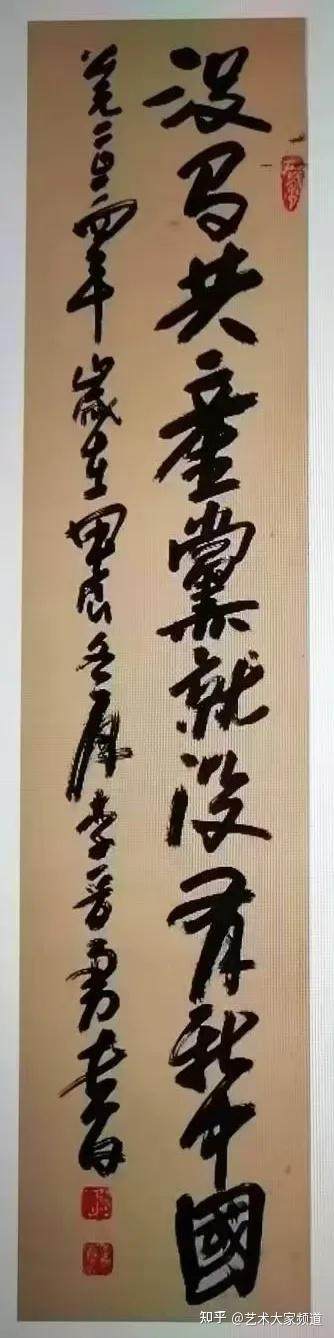 没有共產黨就没有新中國
公元二〇二四年歲在甲辰冬月李晋書
知乎 @艺术大家频道